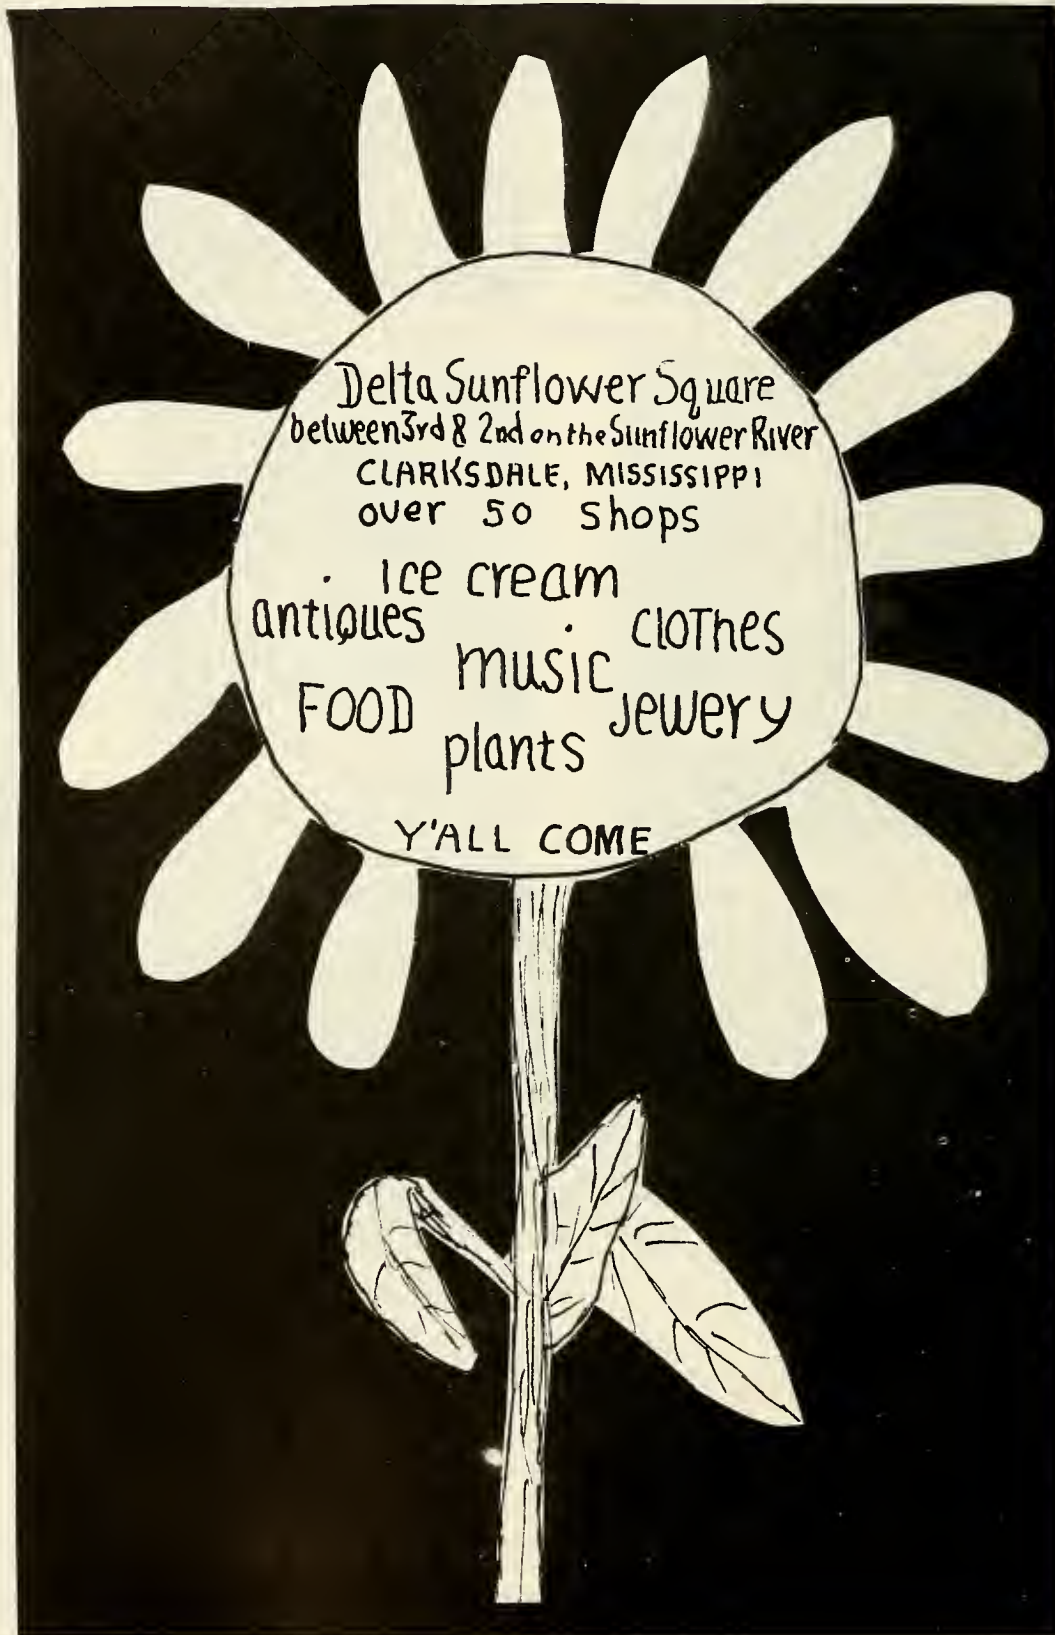 Delta Sunflower Square
between 3rd & 2nd on the Sunflower River
CLARKSDALE, MISSISSIPPI
over 50 shops
ice cream
antiques
CLOThes
music
FOOD
Jewery
plants
Y'ALL COME